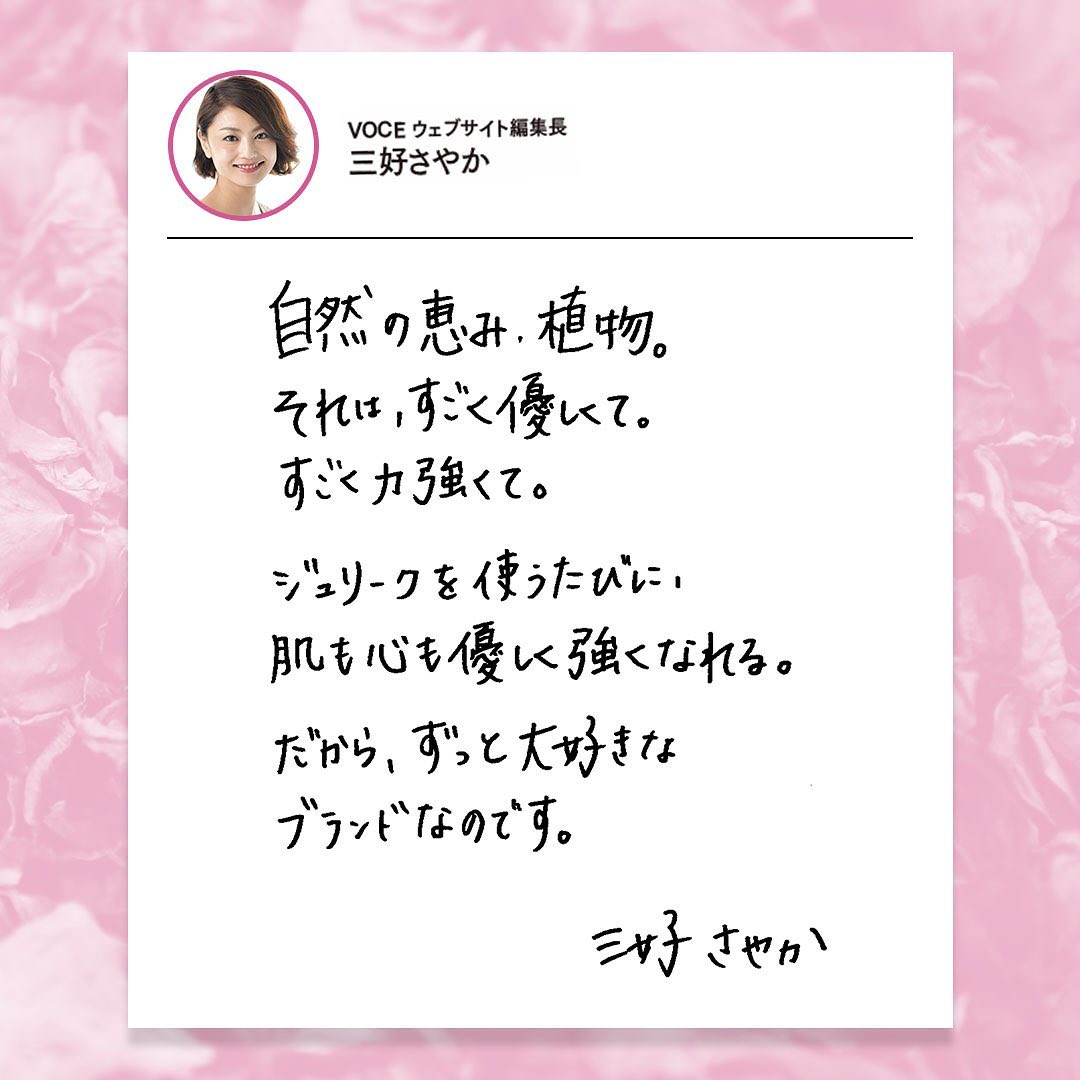 VOCE ウェブサイト編集長
三好さやか
自然の恵み、植物。
それは、すごく優しくて。
すごく力強くて。
ジュリークを使うたびに、
肌も心も優しく強くなれる。
だから、ずっと大好きな
ブランドなのです。
三好 さやか